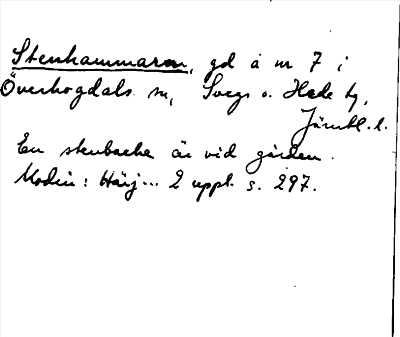 Stenhammaren, gd å nr 7 i
Överhogdals sn, Svegs o. Hede tg,
Jämtl. l.
En stenbacke är vid gården.
Modin: Härj... 2 uppl. s. 297.